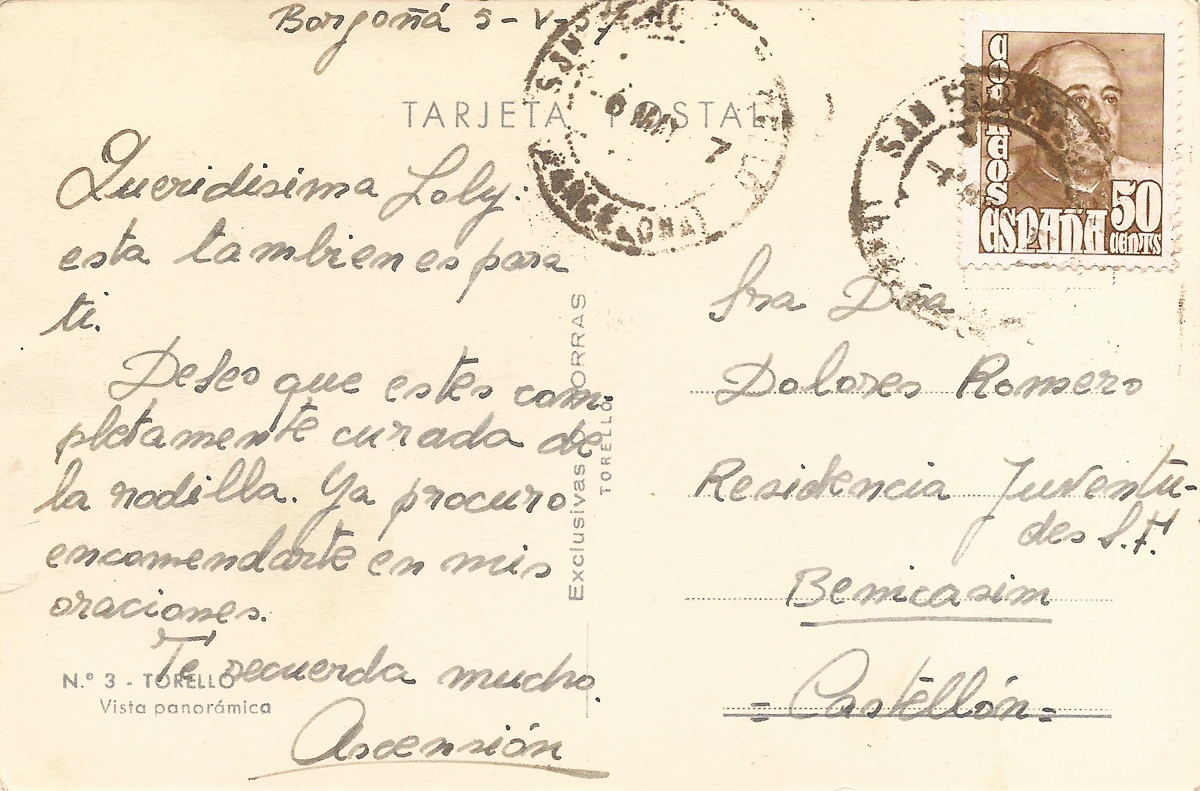 Borgoñá 5-V-57
TARJETA POSTAL
Queridisima Loly:
esta tambien es para
ti.
Deseo que estes com-
pletamente curada de
la rodilla. Ya procuro
encomendarte en mis
oraciones.
Te recuerda mucho.
Ascensión
N.º 3 - TORELLO
Vista panorámica
Exclusivas
TORELLÓ
CORREOS
ESPAÑA 50
CENTS
SAN
MAY 7
Sra Dña
Dolores Romero
Residencia Juventu-
des S.F.
Benicasim
= Castellón =